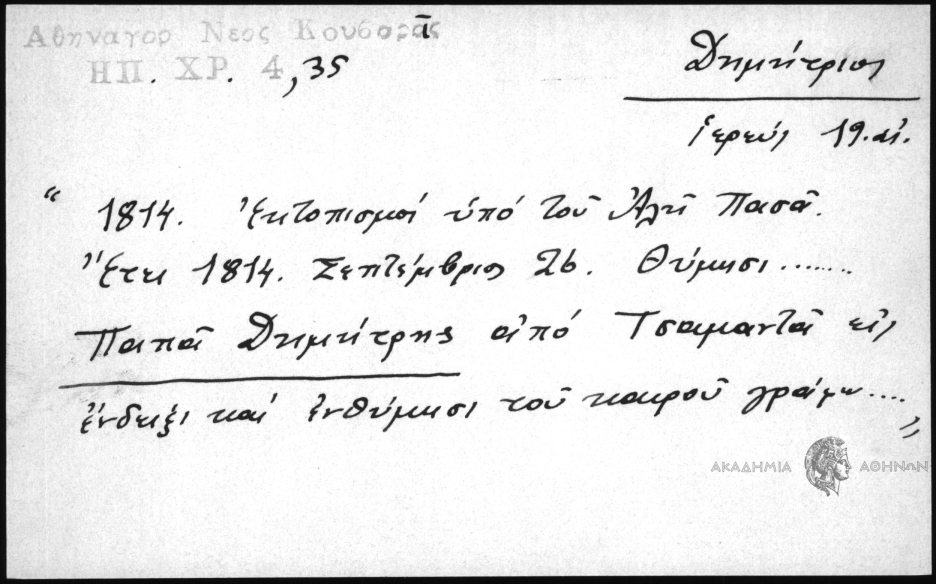 Αθηναγορ Νεος Κουβαρᾶς ᾱ
ΗΠ. ΧΡ. 4,35
Δημήτριος
ἱερεύς 19. αἰ.
“ 1814. Ἐκτοπισμοί ὑπό τοῦ Ἀλῆ Πασᾶ.
Ἔτει 1814. Σεπτέμβριος 26. Θύμησι.......
Παπᾶ Δημήτρης ἀπό Τσαμαντᾶ εἰς
ἔνδειξι καί ἐνθύμησι τοῦ καιροῦ γράφω....”
ΑΚΑΔΗΜΙΑ ΑΘΗΝΩΝ